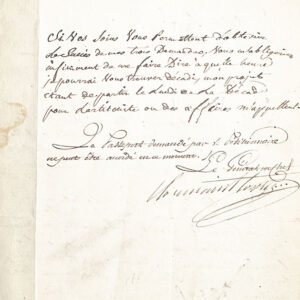 Si Vos Soins Vous permettent d'obtenir
le Succès de mes trois Demandes, Vous m'obligerez
infiniment de me faire Dire à quelle heure
je pourrai Vous trouver Décadi, mon projet
étant de partir le Lundi de la Décade
pour des affaires m'appellent
Le Passeport demandé par le Pétitionnaire
ne peut être accordé en ce moment.
Le Général en chef